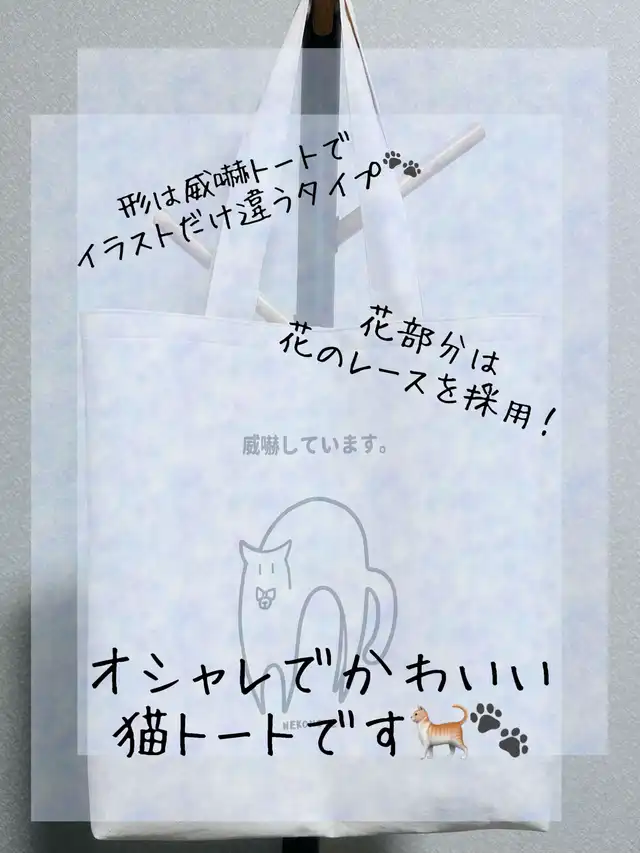 形は威嚇トートで
イラストだけ違うタイプ🐾
花部分は
花のレースを採用!
威嚇しています。
オシャレでかわいい
猫トートです🐈🐾